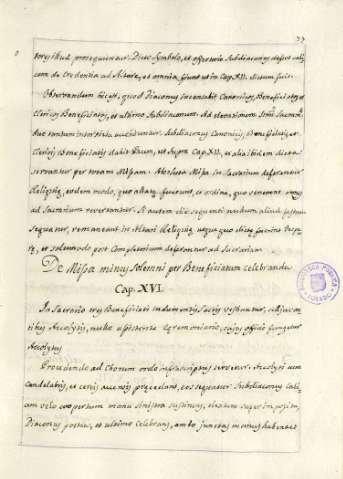 37
toribus prosequentur. Dicto Symbolo, et offertorio Subdiaconus defert cali
cem de Credentia ad Altare, et omnia fiunt ut in Cap. XV. dictum fuit.
Observandum est, quod Diaconus incensabit Canonicos, Beneficiatos, et
Clericos Beneficiatos, et ultimo Subdiaconum. Ad elevationem Smi. Sacra
duo tantum accenduntur. Subdiaconus Canonicis, Beneficiatis, et
Clericis Beneficiatis dabit Pacem, ut supra Cap. XV. et alia ibidem dicta
servantur per totam Missam. Absoluta Missa in Sacrarium deferantur
Reliquiæ, eodem modo, quo allatæ fuerunt, et ordine, quo venerunt
ad Sacrarium revertantur. Si autem die sequenti nullum aliud festum
sequatur, remaneant in Altari Reliquiæ, usque quo dictæ fuerint
et solemmodo post Completorium deferantur ad Sacrarium.
De Missa minus Solemni per Beneficiatum celebranda
Cap. XVI.
In Sacrario tres Beneficiati indumentis Sacris vestiuntur,
tibus Accolytis, nullo assistente Cæremoniario, cujus officio fungetur
Accolytus
Procedendo ad Chorum ordo infrascriptus servetur. Accolyti cum
candelabris, et cereis accensis præcedant, eos sequatur Subdiaconus cali
cem velo coopertum manu sinistra sustinens, dextera superimposita,
Diaconus postea, et ultimo Celebrans, ambo junctas manus habentes
BIBLIOTECA PUBLICA
TOLEDO